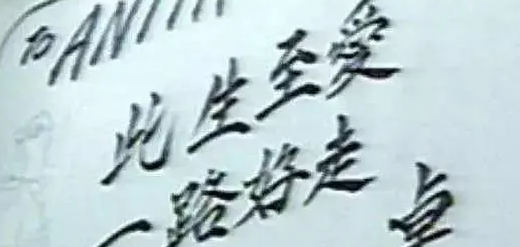 TO ANITA
此生至愛
一路好走